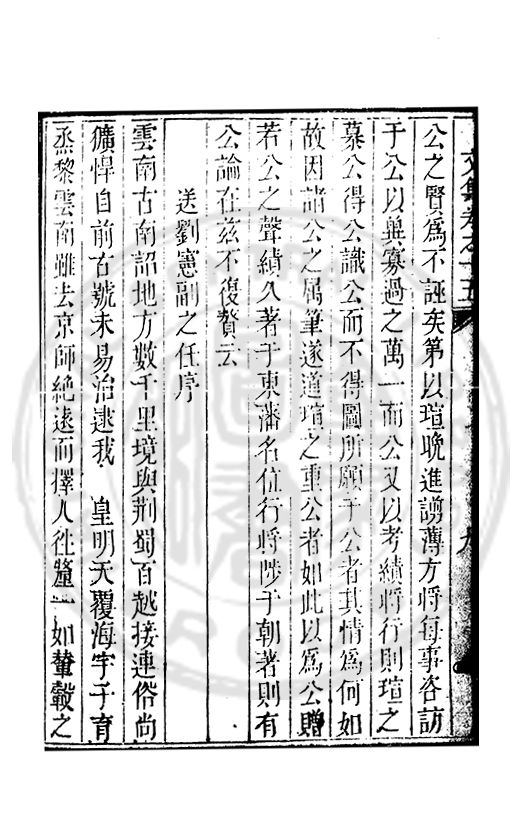 文集卷之十五
公之賢爲不誣矣第以瑄晚進謭薄方將每事咨訪
于公以與寡過之萬一而公又以考績將行則瑄之
慕公得公識公而不得圖所願于公者其情爲何如
故因諸公之属筆遂道瑄之重公者如此以爲公贈
若公之聲績久著于東藩名位行將陟于朝著則有
公論在茲不復贅云
送劉憲副之任序
雲南古南詔地方數千里境與荆蜀百越接連俗尚
獷悍自前古號未易治逮我 皇明天覆海宇子育
烝黎雲南雖去京師絶遠而擇人徃釐一如輦轂之